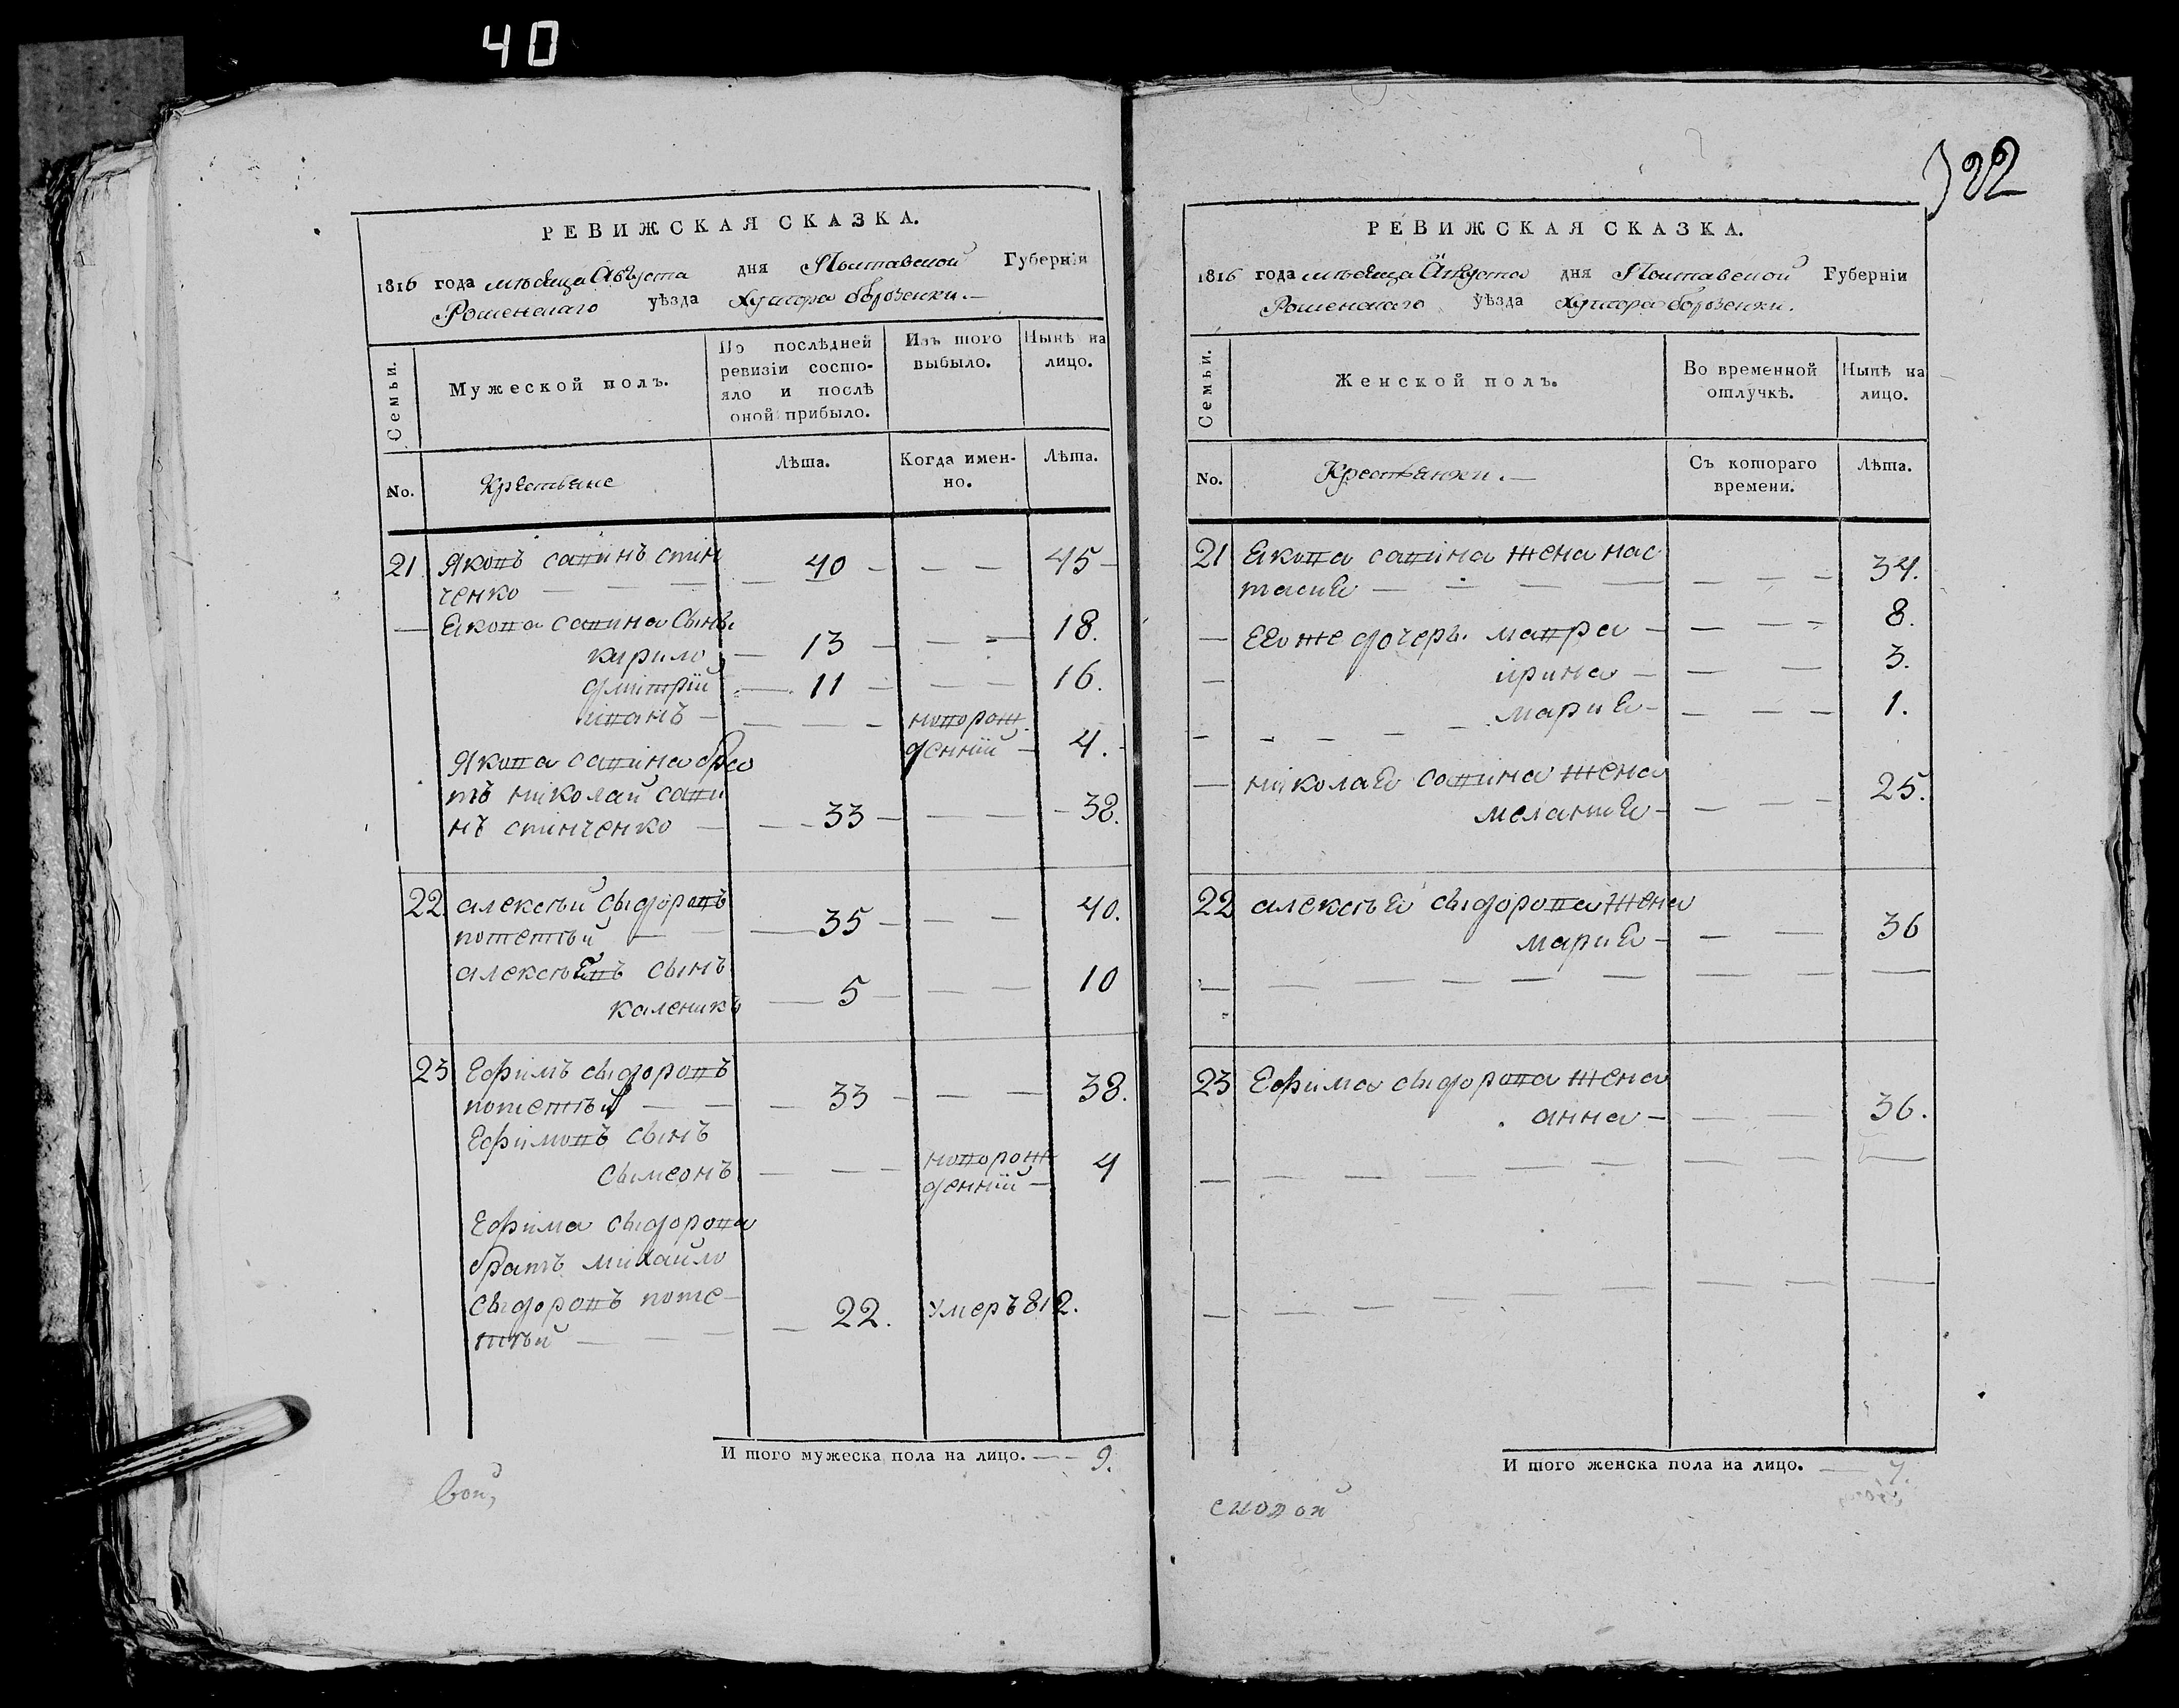 40
РЕВИЖСКАЯ СКАЗКА.
1816 года мѣсяца Августа дня Полтавской Губерніи
Роменскаго уѣзда Хутора борзенки.—
Семьи.
Мужеской полъ.
По послѣдней
ревизіи состо-
яло и послѣ
оной прибыло.
Изъ того
выбыло.
Нынѣ на
лицо.
No.
Крестьяне
Лѣта.
Когда имен-
но.
Лѣта.
21 Яковъ савинъ стін
ченко — 40 — 45
Якова савина Сынъ
кирило — 13 — 18.
дмітрій — 11 — 16.
іванъ — новорож
денній — 4.
Якова савина бра
тъ ніколай сави
нъ стінченко — 33 — 38.
22 алексѣй сыдоровъ
потетѣй — 35 — 40.
алексѣевъ сынъ
каленикъ — 5 — 10
23 Ефимъ сыдоровъ
потетѣй — 33 — 38.
Ефимовъ сынъ
сымеонъ — новорож
денній — 4
Ефима сыдорова
братъ михайло
сыдоровъ поте-
тѣй — 22. умеръ 812.
И того мужеска пола на лицо. — 9.
вой,
122
РЕВИЖСКАЯ СКАЗКА.
1816 года мѣсяца Августа дня Полтавской Губерніи
Роменскаго уѣзда Хутора борзенки.
Семьи.
Женской полъ.
Во временной
отлучкѣ.
Нынѣ на
лицо.
No.
Крестьянки.—
Съ котораго
времени.
Лѣта.
21 Якова савина жена нас
тасия — 34.
Его же дочеръ мавра — 8.
ірина — 3.
мария — 1.
ніколая савина жена
мелания — 25.
22 алексѣя сыдорова жена
мария — 36
23 Ефима сыдорова жена
анна — 36.
И того женска пола на лицо. — 7.